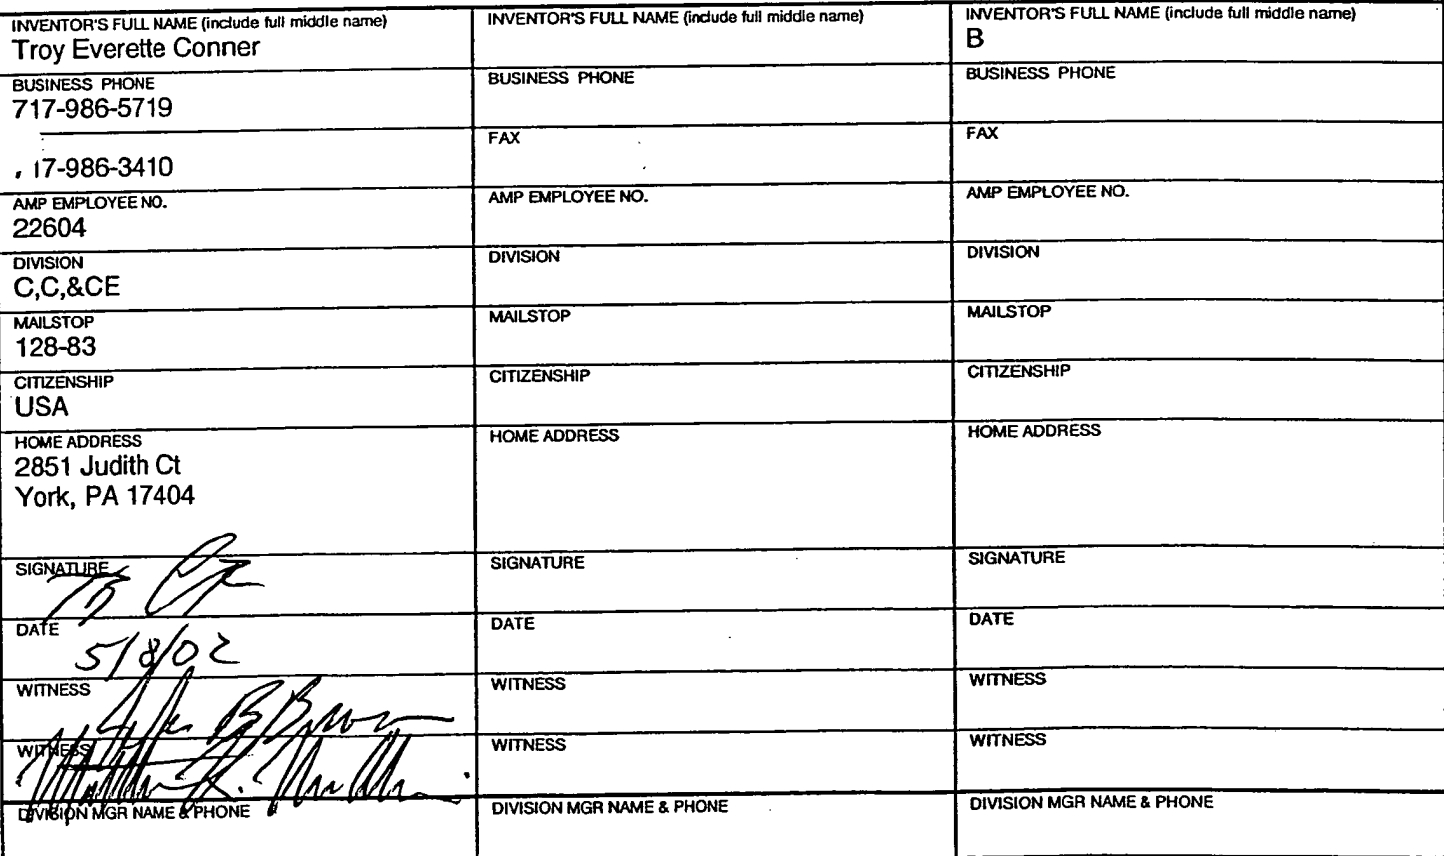 INVENTOR'S FULL NAME (include full middle name)
Troy Everette Conner
BUSINESS PHONE
717-986-5719
17-986-3410
AMP EMPLOYEE NO.
22604
DIVISION
C,C,&CE
MAILSTOP
128-83
CITIZENSHIP
USA
HOME ADDRESS
2851 Judith Ct
York, PA 17404
SIGNATURE
DATE
5/8/02
WITNESS
WITNESS
DIVISION MGR NAME & PHONE
INVENTOR'S FULL NAME (include full middle name)
BUSINESS PHONE
FAX
AMP EMPLOYEE NO.
DIVISION
MAILSTOP
CITIZENSHIP
HOME ADDRESS
SIGNATURE
DATE
WITNESS
WITNESS
DIVISION MGR NAME & PHONE
INVENTOR'S FULL NAME (include full middle name)
B
BUSINESS PHONE
FAX
AMP EMPLOYEE NO.
DIVISION
MAILSTOP
CITIZENSHIP
HOME ADDRESS
SIGNATURE
DATE
WITNESS
WITNESS
DIVISION MGR NAME & PHONE